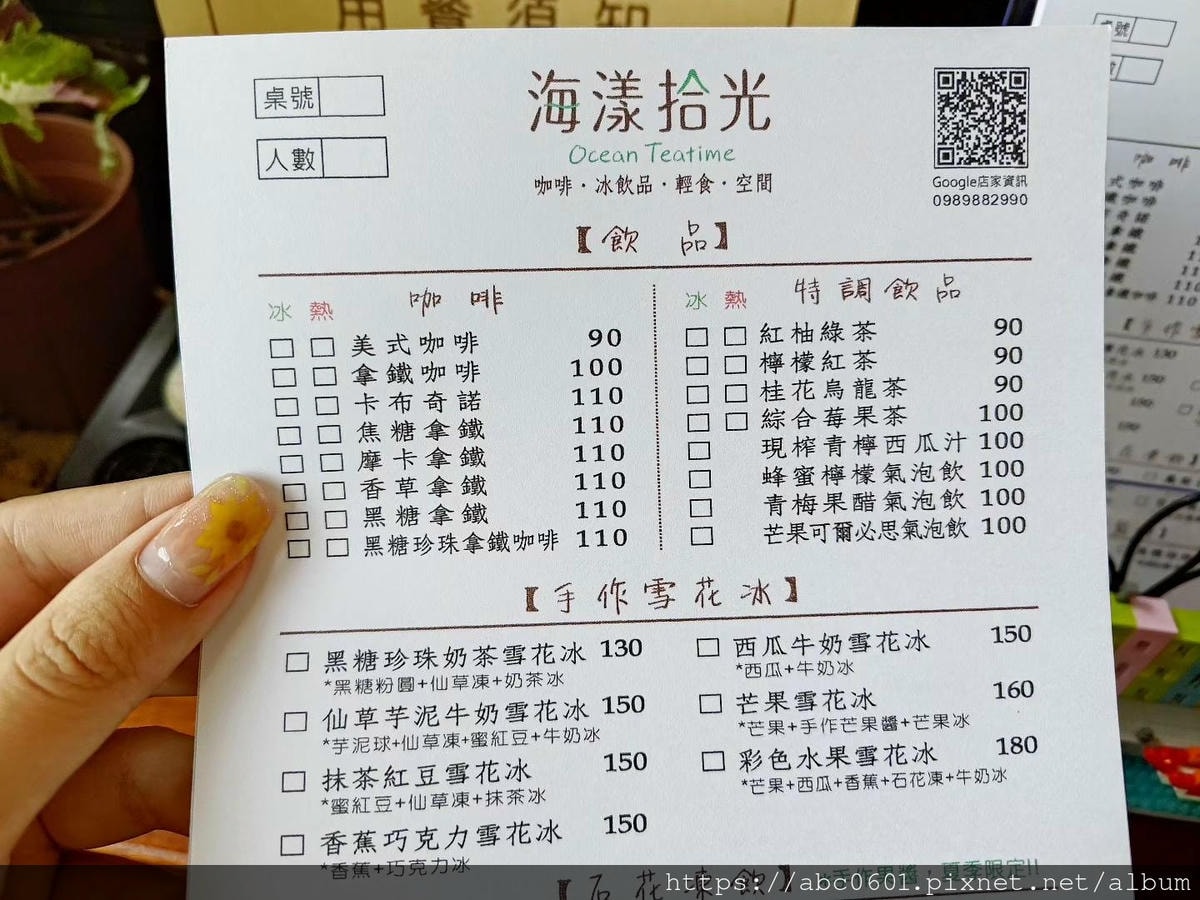 用餐須知
桌號
人數
海漾拾光
Ocean Teatime
咖啡·冰飲品·輕食·空間
Google店家資訊
0989882990
【飲 品】
冰 熱 咖啡
美式咖啡 90
拿鐵咖啡 100
卡布奇諾 110
焦糖拿鐵 110
摩卡拿鐵 110
香草拿鐵 110
黑糖拿鐵 110
黑糖珍珠拿鐵咖啡 110
冰 熱 特調飲品
紅柚綠茶 90
檸檬紅茶 90
桂花烏龍茶 90
綜合莓果茶 100
現榨青檸西瓜汁 100
蜂蜜檸檬氣泡飲 100
青梅果醋氣泡飲 100
芒果可爾必思氣泡飲 100
【手作雪花冰】
黑糖珍珠奶茶雪花冰 130
*黑糖粉圓+仙草凍+奶茶冰
仙草芋泥牛奶雪花冰 150
*芋泥球+仙草凍+蜜紅豆+牛奶冰
抹茶紅豆雪花冰 150
*蜜紅豆+仙草凍+抹茶冰
香蕉巧克力雪花冰 150
*香蕉+巧克力冰
西瓜牛奶雪花冰 150
*西瓜+牛奶冰
芒果雪花冰 160
*芒果+手作芒果醬+芒果冰
彩色水果雪花冰 180
*芒果+西瓜+香蕉+石花凍+牛奶冰
*手作果醬，夏季限定!!
【石花凍飲】
https://abc0601.pixnet.net/album